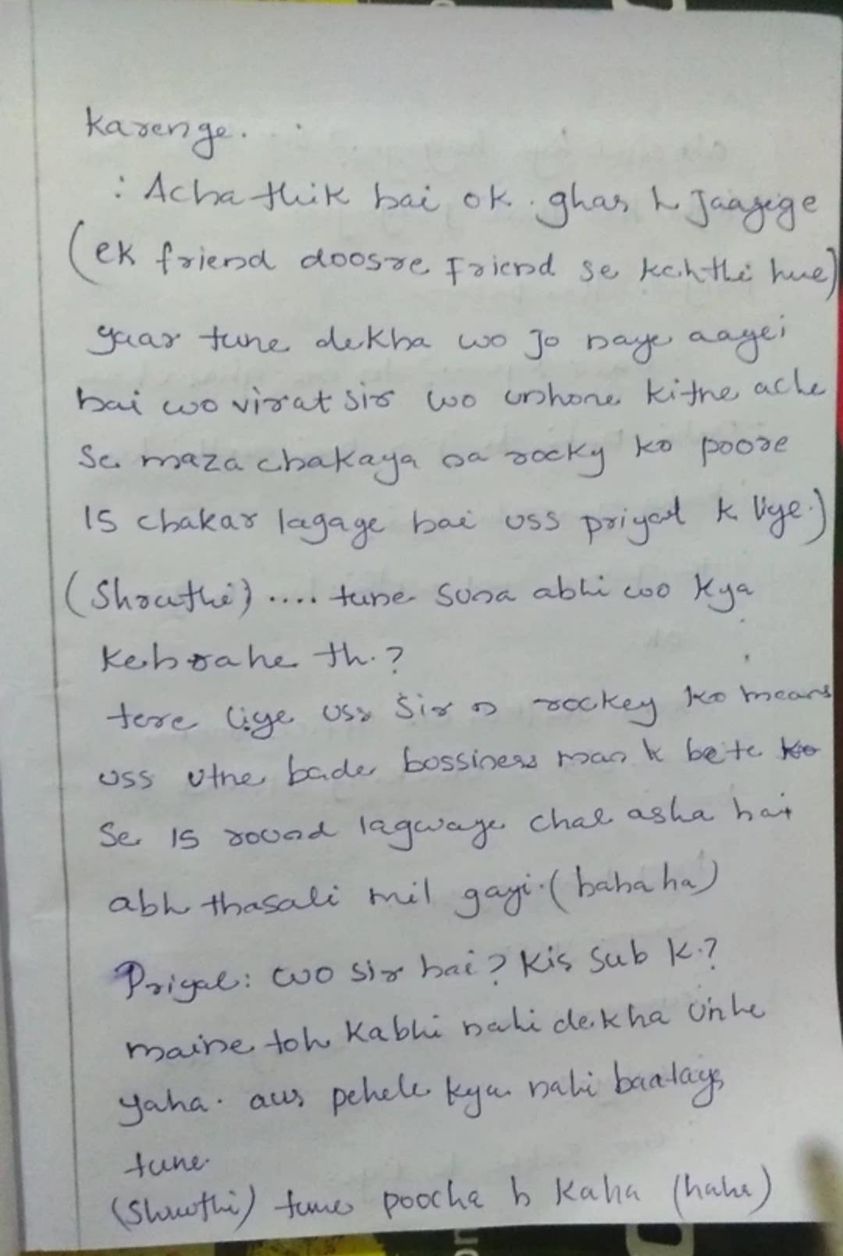 karenge.
: Acha thik hai ok. ghar h jaayege
(ek friend doosre Friend se kehthi hue)
yaar tune dekha wo jo naye aayei
hai wo virat sir wo unhone kitne ache
se maza chakaya na rocky ko poore
15 chakar lagage hai uss priyal k liye.)
(Shruthi) .... tune suna abhi wo kya
keh rahe th.?
tere liye uss sir n rockey ko means
uss utne bade bossiness man k bete ko
se 15 round lagwaye chal asha hai
abh thasali mil gayi. (hahaha)
Priyal: wo sir hai? kis sub k.?
maine toh kabhi nahi dekha unhe
yaha. aur pehele kyu nahi baataya
tune.
(Shruthi) tune poocha h kaha (haha)